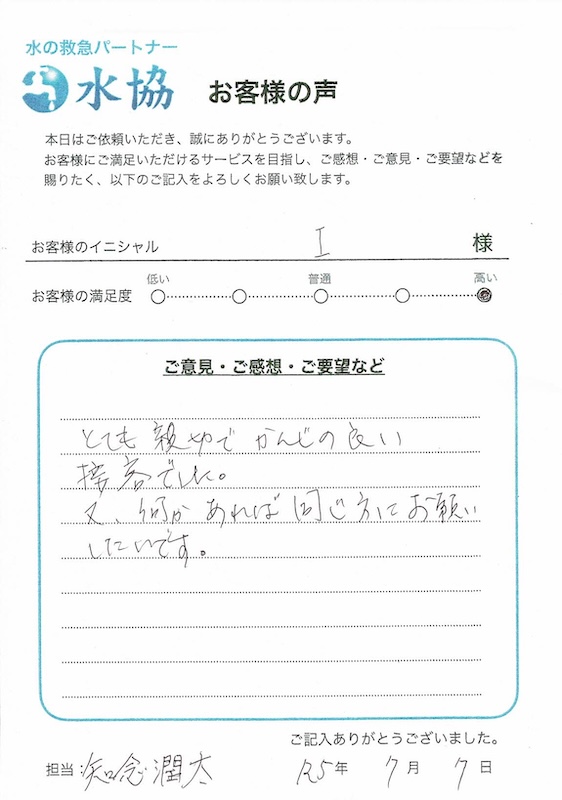 水の救急パートナー
水協 お客様の声
本日はご依頼いただき、誠にありがとうございます。
お客様にご満足いただけるサービスを目指し、ご感想・ご意見・ご要望などを
賜りたく、以下のご記入をよろしくお願い致します。
お客様のイニシャル I 様
低い 普通 高い
お客様の満足度
ご意見・ご感想・ご要望など
とても親切でかんじの良い
接客でした。
又、何かあれば同じ方にお願い
したいです。
ご記入ありがとうございました。
担当:知念潤太 R5年 7月 7日